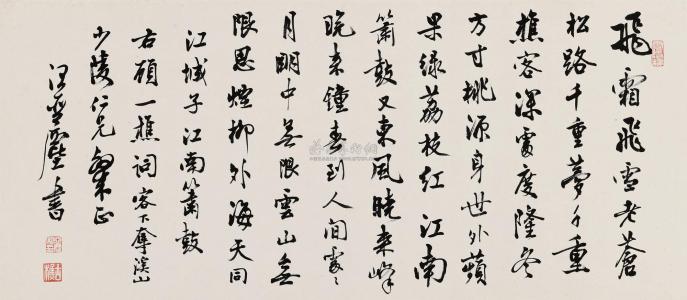 飛霜飛雪老蒼
松路千重夢千重
樵客深處度隆冬
方寸桃源身世外蘋
果綠荔枝紅江南
簫鼓又東風曉來峰
晚来鐘春到人间處〻
月明中無限雲山無
限思煙柳外海天同
江城子江南簫鼓
右顧一樵詞客下奪溪山
少陵仁兄粲正
書